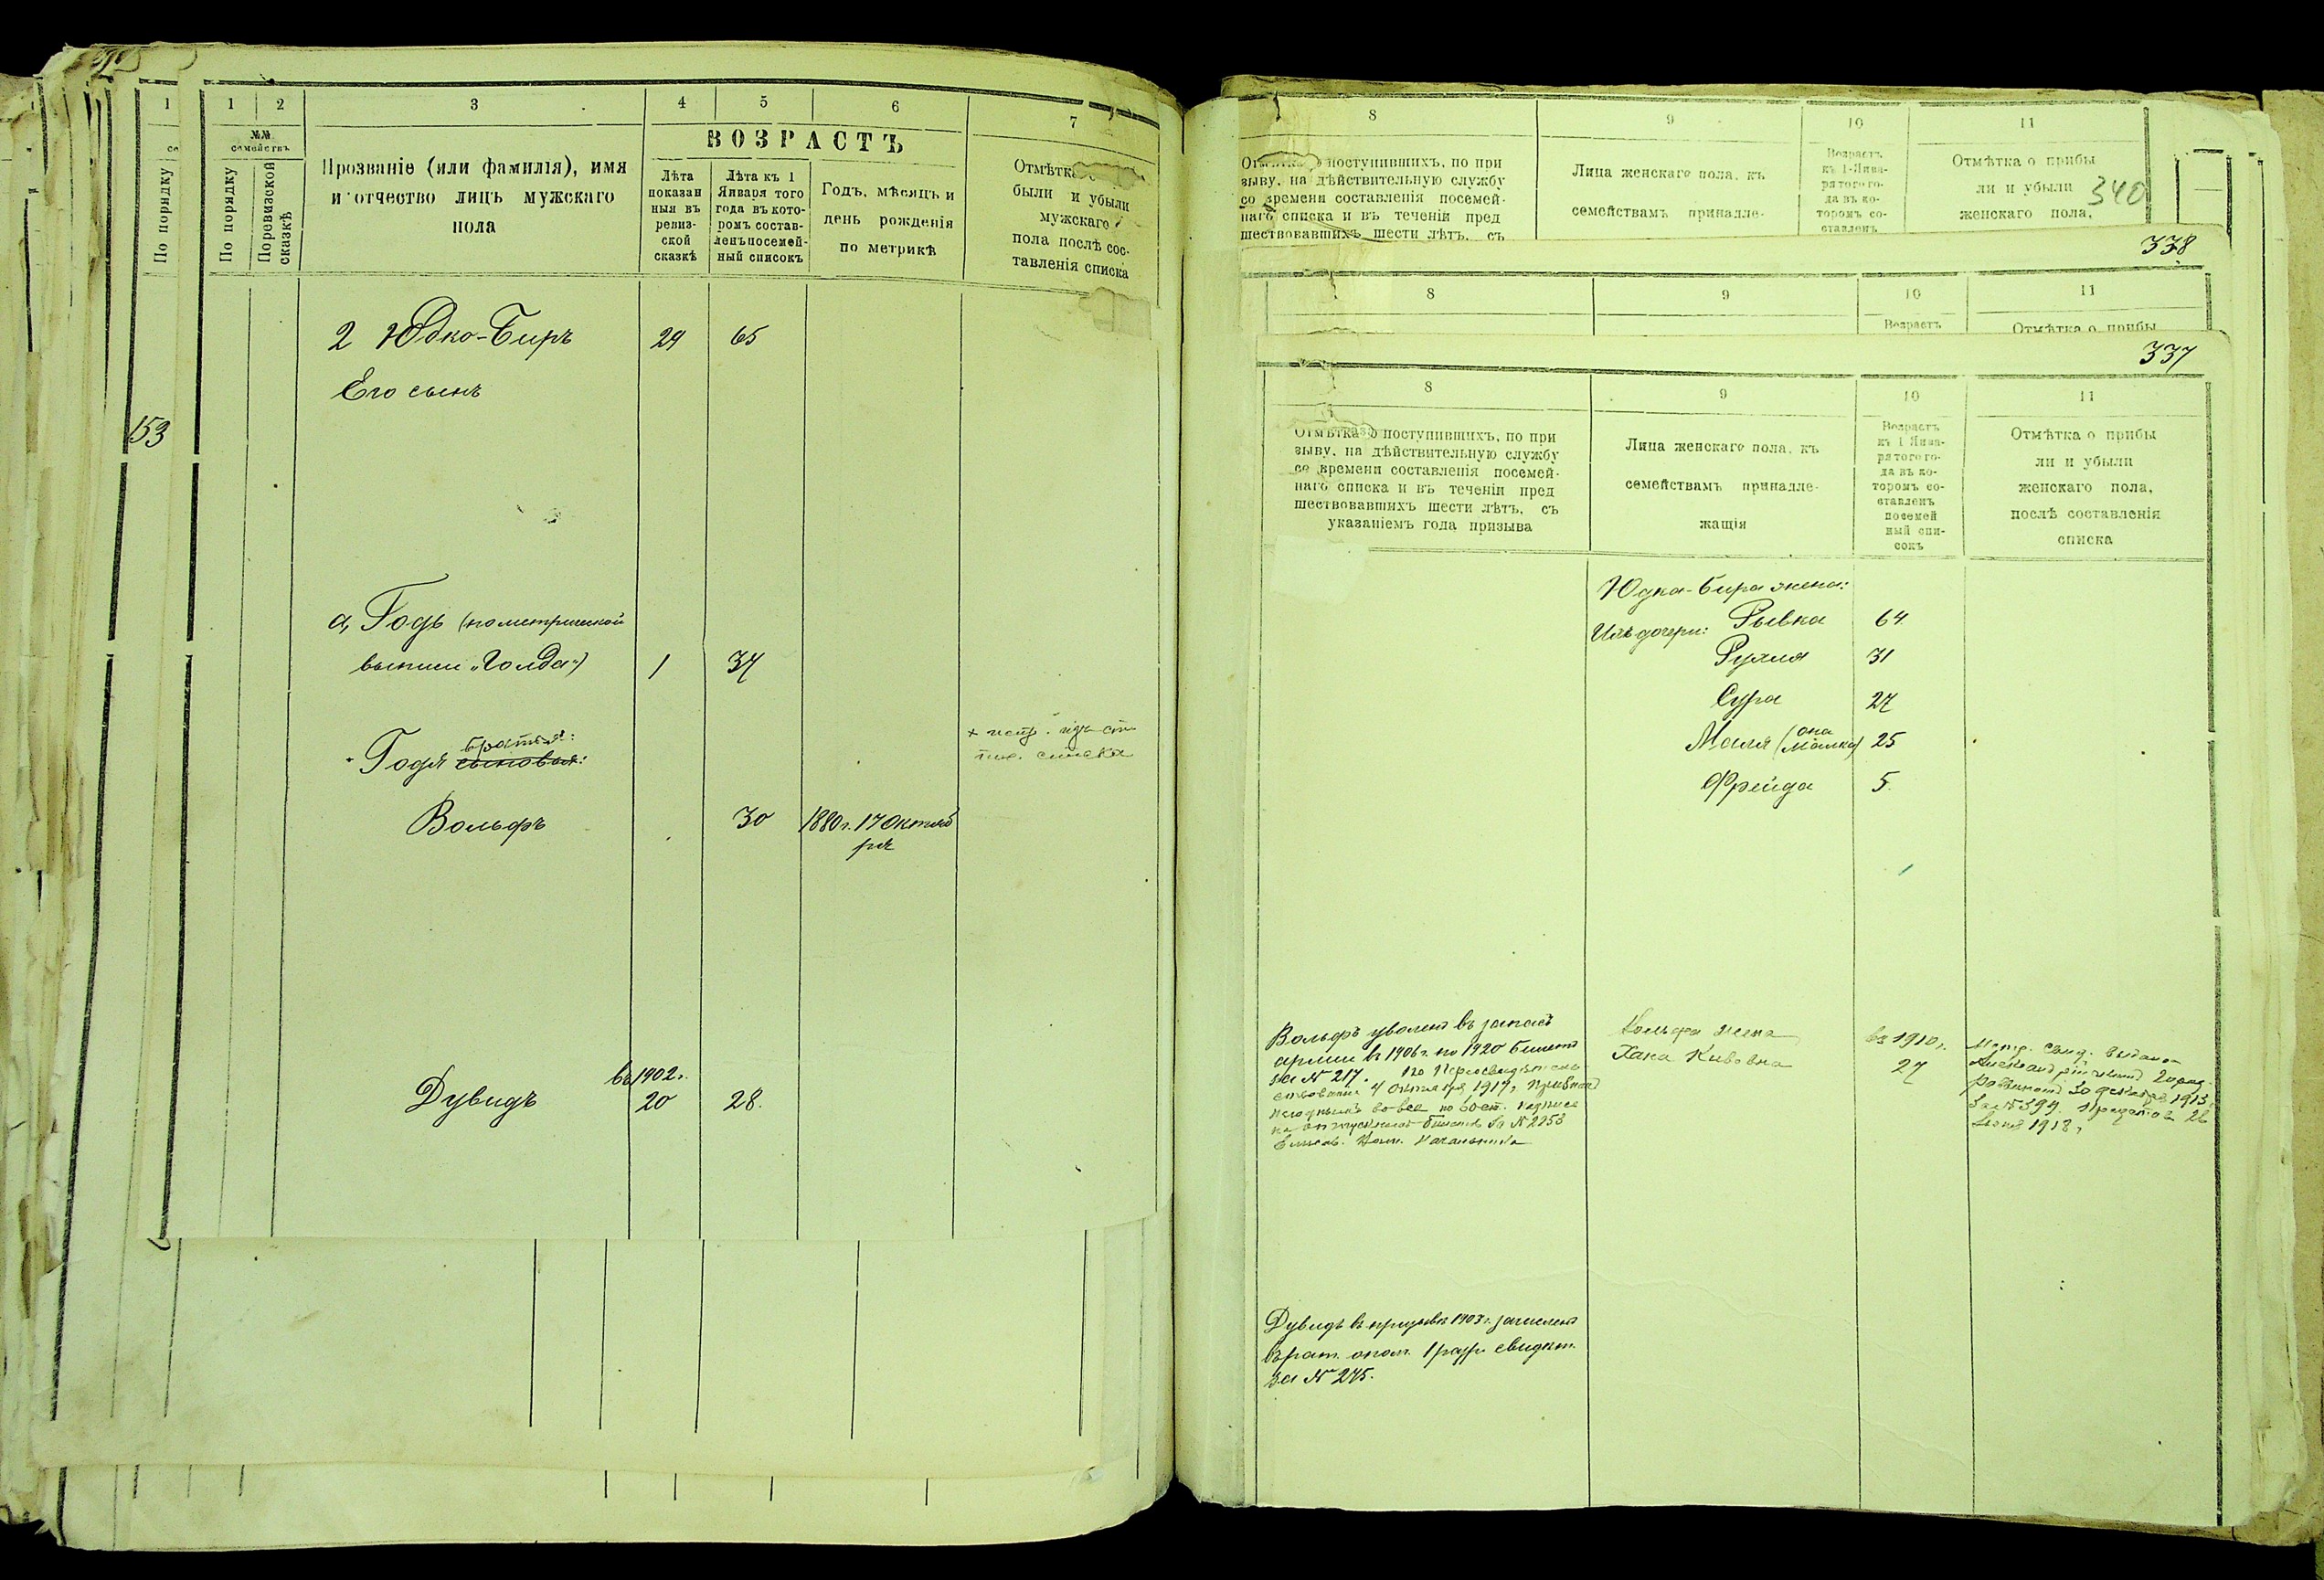 1 2 3 4 5 6 7
№№ семействъ
По порядку
По порядку
По ревизской сказкѣ
Прозваніе (или фамилія), имя
и отчество лицъ мужскаго
пола
ВОЗРАСТЪ
Лѣта
показан
ныя въ
ревиз-
ской
сказкѣ
Лѣта къ 1
Января того
года въ кото-
ромъ состав-
ленъ посемей-
ный списокъ
Годъ, мѣсяцъ и
день рожденія
по метрикѣ
Отмѣтк
были и убыли
мужскаго
пола послѣ сос-
тавленія списка
2 Юдко-Биръ 29 65
Его сынъ
153
а, Годь (по метрической
выписи „Голда") 1 34
братья:
Годя сыновья:
списка
Вольфъ 30 1880 г. 17 Октяб
ря
въ 1902 г.
Дувидъ 20 28.
8 9 10 11
Отмѣтка о поступившихъ, по при
зыву, на дѣйствительную службу
со времени составленія посемей-
наго списка и въ теченіи пред
шествовавшихъ шести лѣтъ, съ
Лица женскаго пола, къ
семействамъ принадле-
Возрастъ
къ 1-Янва-
ря того го-
да въ ко-
торомъ со-
ставленъ
Отмѣтка о прибы
ли и убыли
женскаго пола,
340
338
8 9 10 11
Возрастъ
Отмѣтка о прибы
337
8 9 10 11
Отмѣтка о поступившихъ, по при
зыву, на дѣйствительную службу
со времени составленія посемей-
наго списка и въ теченіи пред
шествовавшихъ шести лѣтъ, съ
указаніемъ года призыва
Лица женскаго пола, къ
семействамъ принадле-
жащія
Возрастъ
къ 1 Янва-
ря того го-
да въ ко-
торомъ со-
ставленъ
посемей
ный спи-
сокъ
Отмѣтка о прибы
ли и убыли
женскаго пола,
послѣ составленія
списка
Юдка-Бира жена:
Рывка 64
Ихъ дочери:
Рухля 31
Сура 27
Маля (она Малка) 25
Фрейда 5
Вольфъ уволенъ въ запасъ
арміи въ 1906 г. по 1920 билетъ
за № 217. По переосвидѣтель
ствованіи 4 1917 г. признанъ
негоднымъ во все
билетъ за № 2253
Начальника
Вольфа жена
Хака Кивовна
въ 1910 г.
27
Метр. свид. выдано
Александрійскимъ город.
раввиномъ 30 декабря 1913
за № 394. 26
1918 г.
Дувидъ въ призывъ 1903 г. зачисленъ
въ рат. опол. 1 разр. свидѣт.
за № 245.